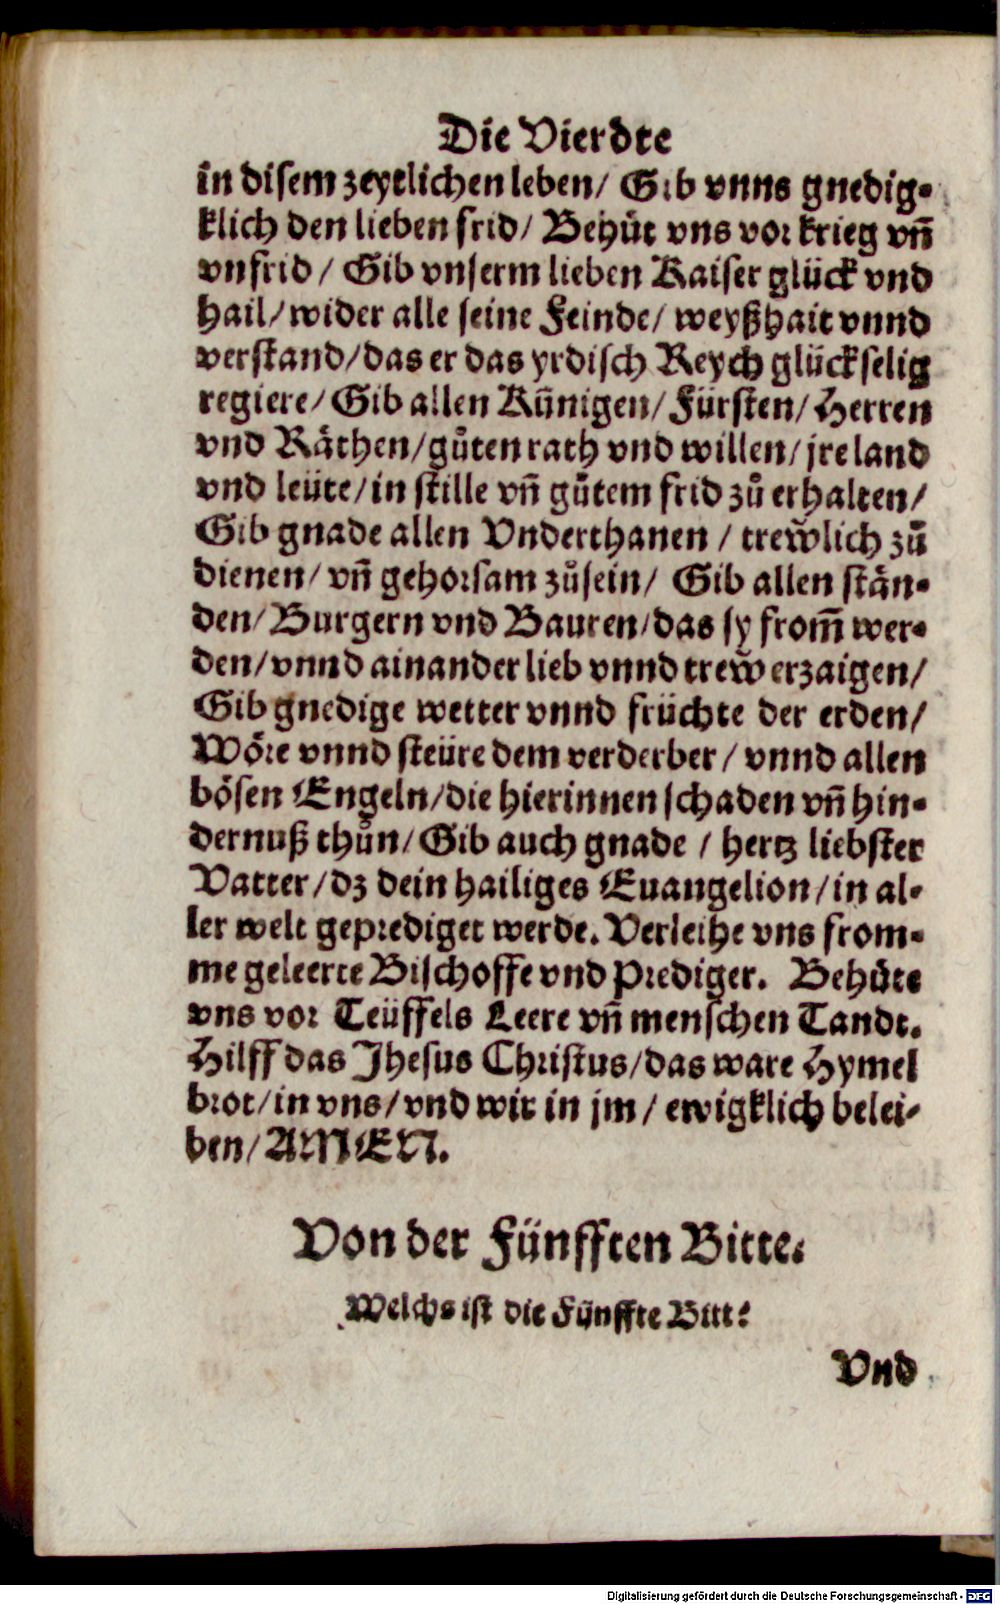 Die Vierdte
in disem zeytlichen leben/ Gib vnns gnedig⸗
klich den lieben frid/ Behüt vns vor krieg vñ
vnfrid / Gib vnserm lieben Kaiser glück vnd
hail/ wider alle seine Feinde/ weyßhait vnnd
verstand/das er das yrdisch Reych glückselig
regiere/ Gib allen Künigen/ Fürsten/ Herren
vnd Räthen/gůten rath vnd willen/ jre land
vnd leüte/in stille vñ gůtem frid zů erhalten/
Gib gnade allen Vnderthanen / trewlich zů
dienen/ vñ gehorsam zůsein/ Gib allen stän⸗
den/ Burgern vnd Bauren/das sy from̃ wer⸗
den/vnnd ainander lieb vnnd trew erzaigen/
Gib gnedige wetter vnnd früchte der erden/
Wöre vnnd steüre dem verderber / vnnd allen
bösen Engeln/die hierinnen schaden vñ hin⸗
dernuß thůn/ Gib auch gnade / hertz liebster
Vatter/dz dein hailiges Euangelion/in al⸗
ler welt geprediget werde. Verleihe vns from⸗
me geleerte Bischoffe vnd Prediger. Behüte
vns vor Teüffels Leere vñ menschen Tandt.
Hilff das Jhesus Christus/das ware Hymel
brot/in vns/vnd wir in jm/ ewigklich belei⸗
ben/AMEN.
Von der Fünfften Bitte.
Welchs ist die Fünffte Bitt?
Vnd
Digitalisierung gefördert durch die Deutsche Forschungsgemeinschaft - DFG